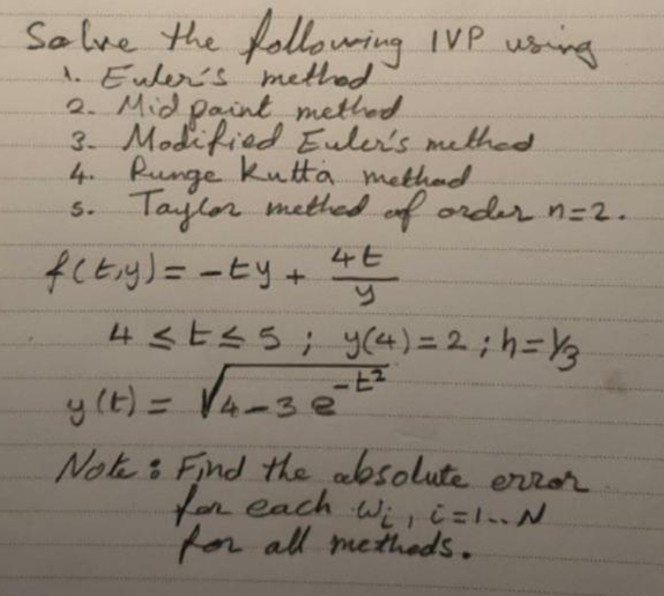 Solve the following IVP using
1. Euler's method
2. Midpoint method
3. Modified Euler's method
4. Runge Kutta method
5. Taylor method of order n=2.
f(t,y) = -ty + 4t/y
4 ≤ t ≤ 5 ; y(4) = 2 ; h = 1/3
y(t) = √(4-3e^(-t²))
Note: Find the absolute error
for each wi, i=1..N
for all methods.